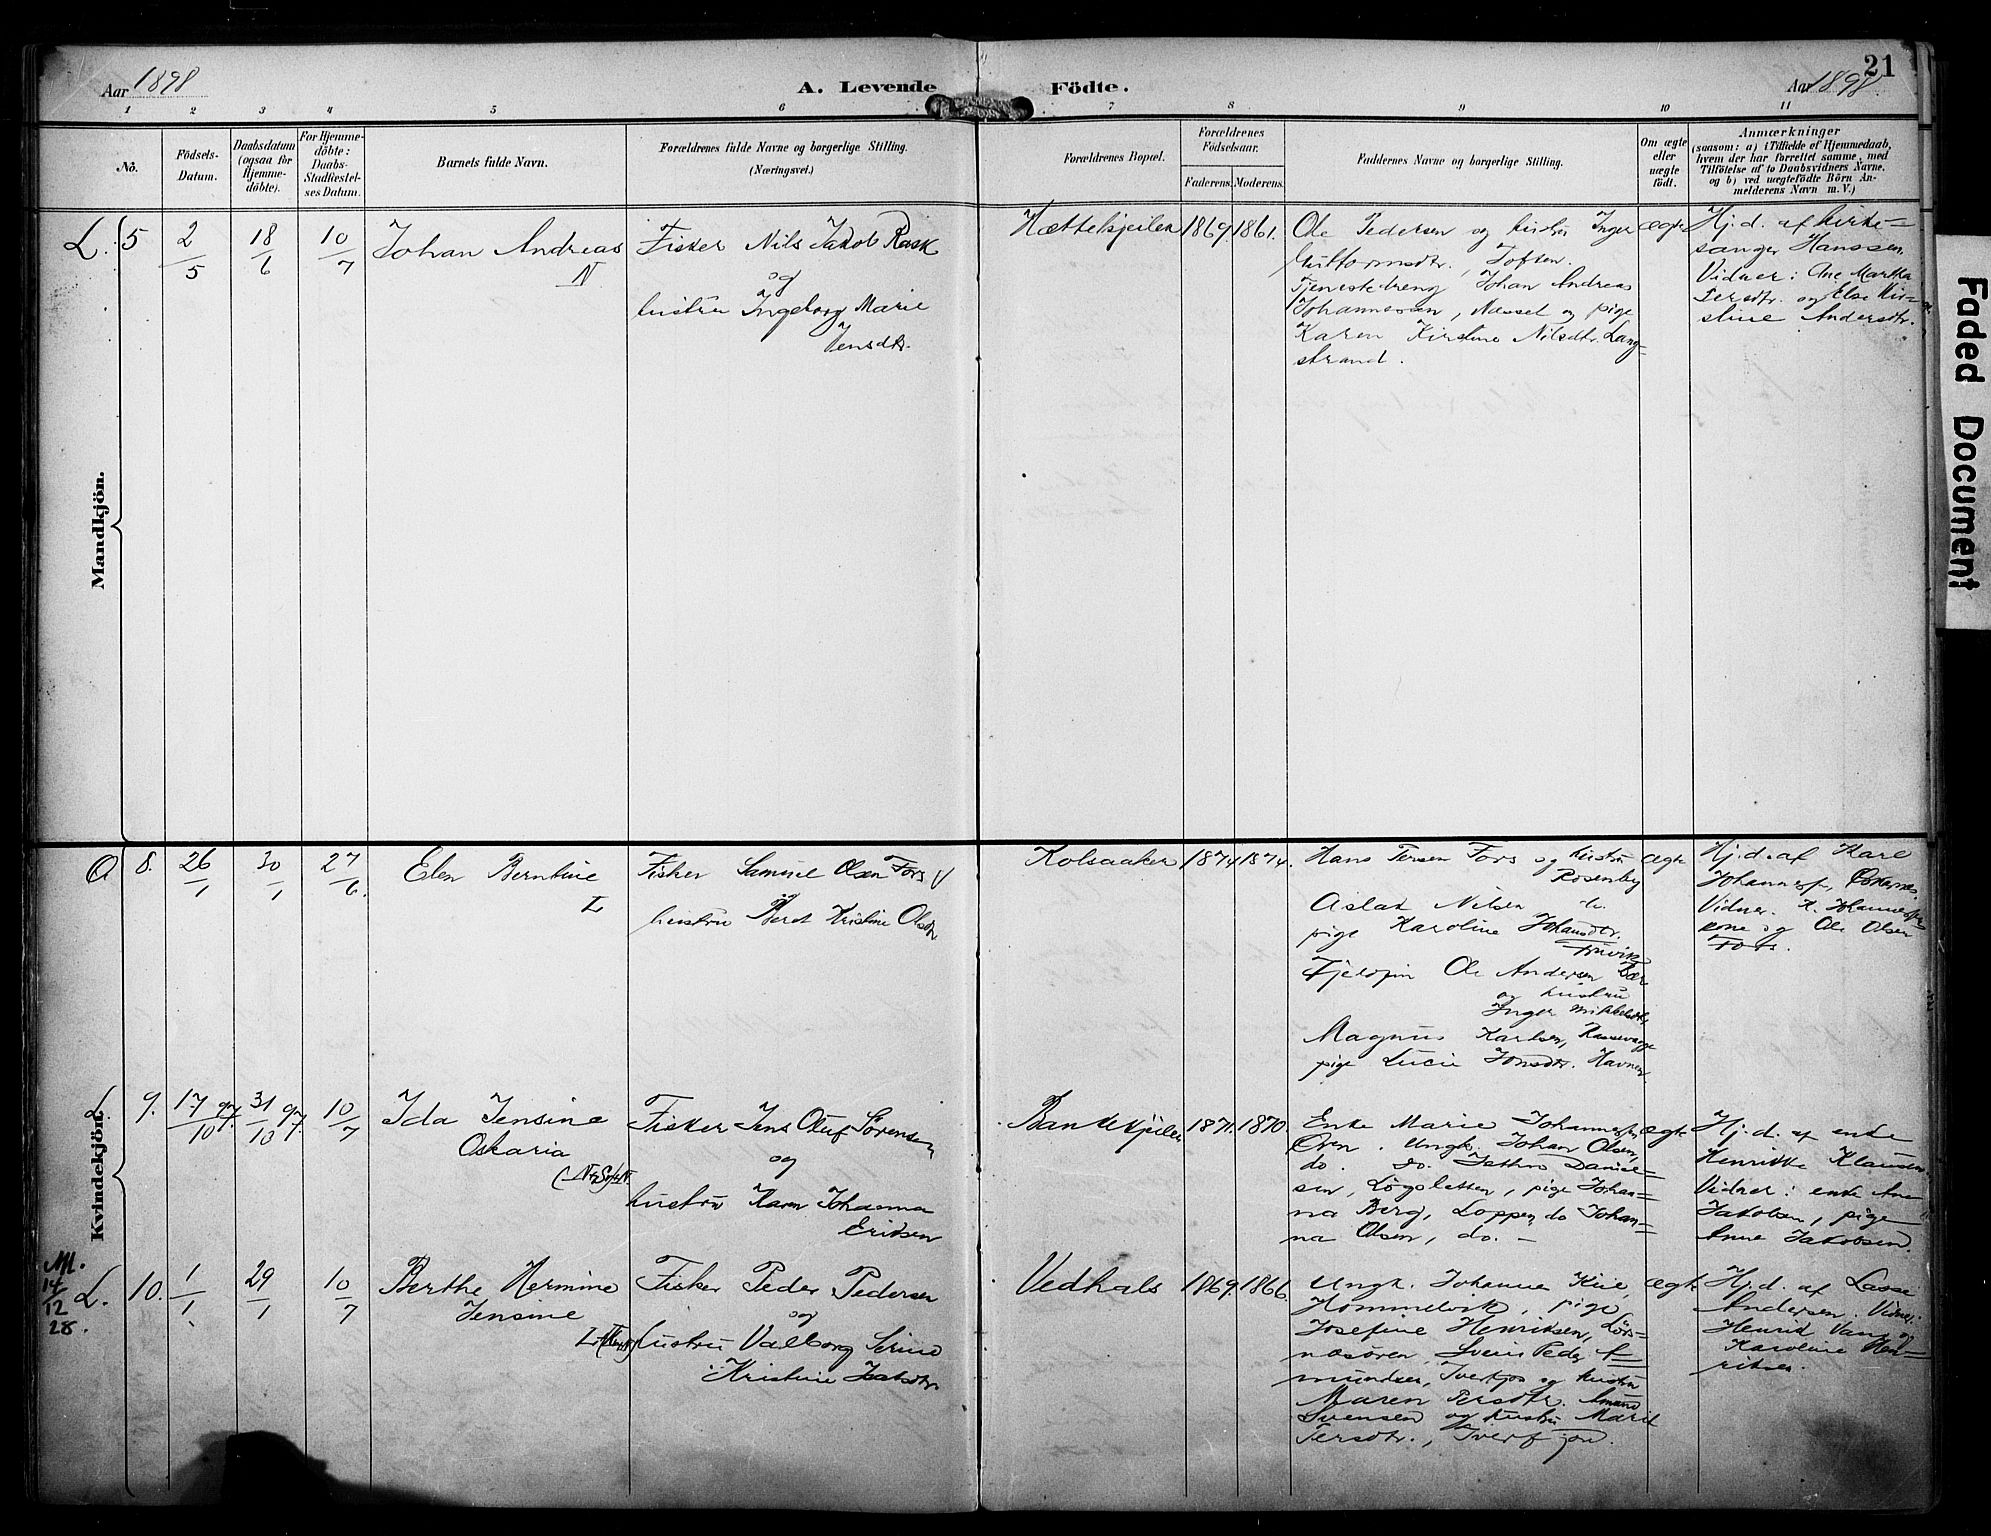 21
Aar 1898
A. Levende Födte.
Aar 1898.
1 2 3 4 5 6 7 8 9 10 11
No.
Födsels-
Datum.
Daabsdatum
(ogsaa for
Hjemme-
döbte).
For Hjemme-
döbte:
Daabs-
Stadfæstel-
ses Datum.
Barnets fulde Navn.
Forældrenes fulde Navne og borgerlige Stilling.
(Næringsvei.)
Forældrenes Bopæl.
Forældrenes
Födselsaar.
Faderens. Moderens.
Faddernes Navne og borgerlige Stilling.
Om ægte
eller
uægte
födt.
Anmærkninger
(saasom: a) i Tilfælde af Hjemmedaab,
hvem der har forrettet samme, med
Tilföielse af to Daabsvidners Navne,
og b) ved uægtefödte Börn An-
melderens Navn m. V.)
Mandkjön.
L. 5
2/5
18/6
10/7
Johan Andreas
N
Fisker Nils Jakob Rask
og
hustru Ingeborg Marie
Jensdtr.
1869. 1861.
Ole Pedersen og hustru Inger
Guttormsdtr., Toften.
Tjenestedreng Johan Andreas
Johannesen, Næsset og pige
Karen Kirstine Nilsdtr. Lang=
strand.
ægte
Hj. d. af kirke=
sanger Hanssen.
Vidner: Ane Martha
Persdtr. og Else Kir=
stine Andersdtr.
Kvindekjön.
8.
26/1
30/1
27/6.
Elen Berntine
L
Fisker Samuel Olsen Fors
hustru Beret Kristine Olsdtr
Kolsaaker
1874 1874.
Hans Persen Fors og hustru
Rosenby
Aslak Nilsen do.
pige Karoline Johansdtr.
Ole Andersen
og hustru
Inger Mikkelsdtr,
Magnus Karlsen,
pige Lucie Jonsdtr. Havnen.
ægte
Hj. d. af Karl
Vidner. K.
kone og Ole Olsen
Fors.
L. 9.
17/10 97.
31/10 97.
10/7
Ida Jensine
Oskaria
Fisker Jens Oluf Sörensen
og
hustru Karen Johanna
Eriksen
1871. 1870.
Enke Marie
Ören. Ungk. Johan Olsen,
do. do. Daniel=
sen, Lögsletten, pige Johan=
na Berg, Loppen, do Johan=
na Olsen, do. –
ægte
Hj. d. af enke
Henrikke Klausen.
Vidner: enke Ane
Jakobsen, pige
Anne Jakobsen.
M.
14
12
28.
L. 10.
1/1
29/1
10/7
Berthe Hermine
Jensine
Fisker Peder Pedersen
og
hustru Valborg Serine
Kristine
Vedhals
1869. 1866.
Ungk.
pige
Josefine Henriksen,
Peder A=
mundsen, og hustru
Maren Persdtr. Amund
Svensen og hustru Marit
Persdtr.,
ægte
Hj. d. af Lasse
Andersen. Vidner:
Henrik
Karoline Hen=
riksen.
Faded Document